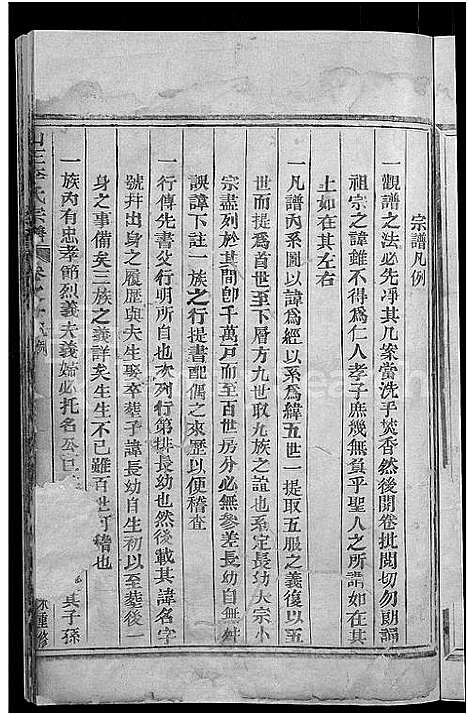 宗譜凡例
一觀譜之法必先淨其几案當洗手焚香然後開卷批閱切勿朗誦
祖宗之諱雖不得為仁人孝子庶幾無負乎聖人之所謂如在其
上如在其左右
一凡譜內系圖以諱為經以系為緯五世一提取五服之義復以五
世而提為首世至下層方九世取九族之誼也系定長幼大宗小
宗盡列於其間卽千萬戸而至百世房分必無參差長幼自無舛
誤諱下註一族之行提書配偶之來歷以便稽查
一行傳先書父行明所自也次列行第排長幼也然後載其諱名字
號幷出身之履歷與夫生娶卒葬子諱長幼自生初以至葬後一
身之事備矣三族之義詳矣生生不已雖百世可稽也
一族內有忠孝節烈義夫義婦必托名公巨
其子孫
氏宗譜
凡例
重修